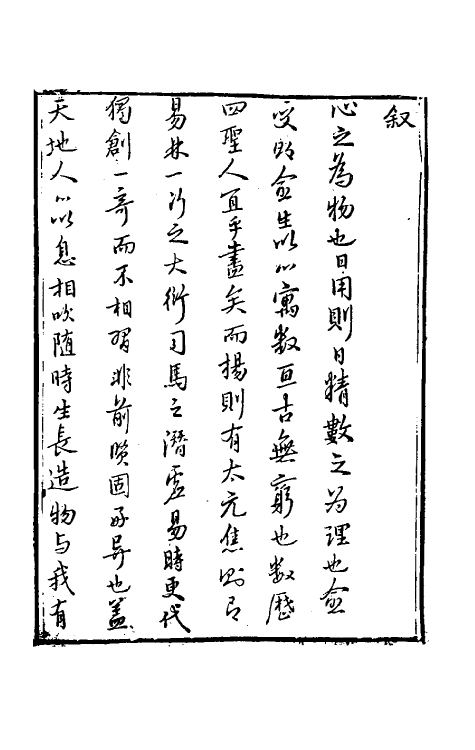 叙
心之為物也日用則日精數之為理也愈
受則愈生以心寓數亘古無窮也數歷
四聖人宜乎盡矣而揚則有太元焦則有
易林一行之大衍司馬之潛虛易時更代
獨創一奇而不相習非前賢固好異也蓋
天地人心以息相吹隨時生長造物与我有